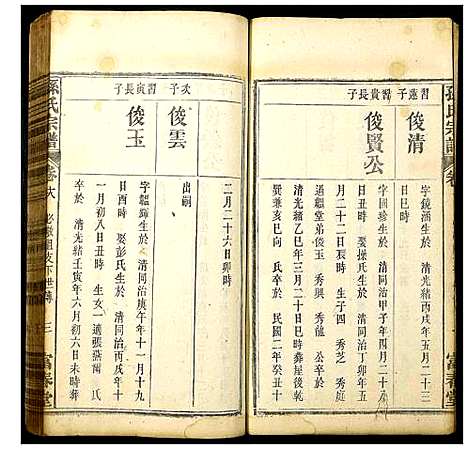 孫氏宗譜
卷
習蓮子
俊清
字鏡湖生於 清光緒戊年五月二十三
日巳時
習貴長子
俊賢公
字國珍生於 清同治甲子年四月二十
日丑時 娶操氏生於 清同治丁卯年五
月二十二日辰時 生子四 秀芝 秀庭
過繼堂弟俊玉 秀興 秀龍 公卒於
清光緒乙巳年三月二十日巳時葬屋後乾
巽兼亥巳向 氏卒於 民國二年癸丑十
二月二十六日卯時
次子
俊雲
出嗣
習寅長子
俊玉
字龍輝生於 清同治庚午年十一月十九
日酉時 娶彭氏生於 清同治丙戌年十
一月初八日丑時 生女一適張燕謂 氏
卒於 清光緒壬寅年六月初六日未時葬
孫氏宗譜
卷十八
必徽祖支下世傳
三
富春堂
富春堂